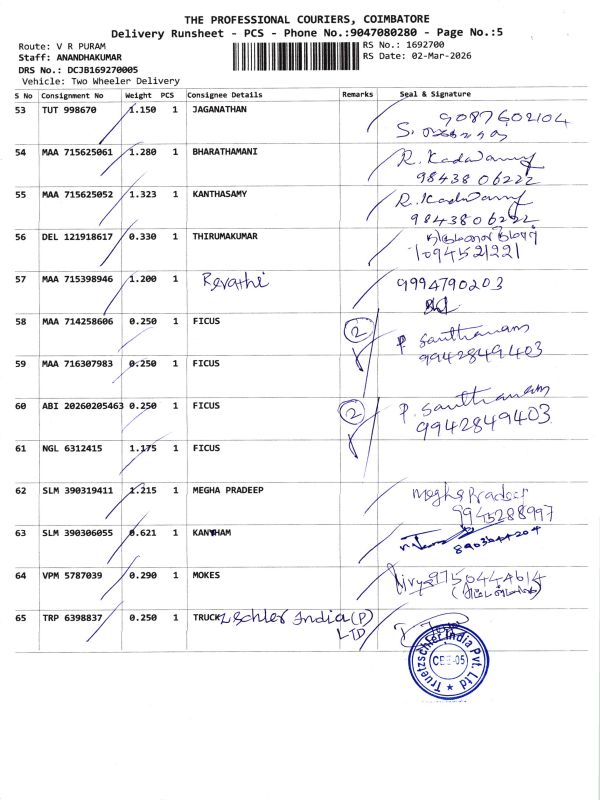 THE PROFESSIONAL COURIERS, COIMBATORE
Delivery Runsheet - PCS - Phone No.:9047080280 - Page No.:5
Route: V R PURAM
RS No.: 1692700
Staff: ANANDHAKUMAR
RS Date: 02-Mar-2026
DRS No.: DCJB169270005
Vehicle: Two Wheeler Delivery
S No Consignment No Weight PCS Consignee Details Remarks Seal & Signature
53 TUT 998670 1.150 1 JAGANATHAN 9087602104
S.
54 MAA 715625061 1.280 1 BHARATHAMANI R. Kadaswamy
9843806222
55 MAA 715625052 1.323 1 KANTHASAMY R. Kadaswamy
9843806222
56 DEL 121918617 0.330 1 THIRUMAKUMAR
57 MAA 715398946 1.200 1 Revathi 9994790203
58 MAA 714258606 0.250 1 FICUS 2 P. Santhanam
9942849403
59 MAA 716307983 0.250 1 FICUS
60 ABI 20260205463 0.250 1 FICUS 2 P. Santhanam
9942849403
61 NGL 6312415 1.175 1 FICUS
62 SLM 390319411 1.215 1 MEGHA PRADEEP Megha Pradeep
9945288997
63 SLM 390306055 0.621 1 KANTHAM
8903644204
64 VPM 5787039 0.290 1 MOKES 9750444614
65 TRP 6398837 0.250 1 TRUCKZschler India (P)
LTD
Truetzschler India Pvt. Ltd